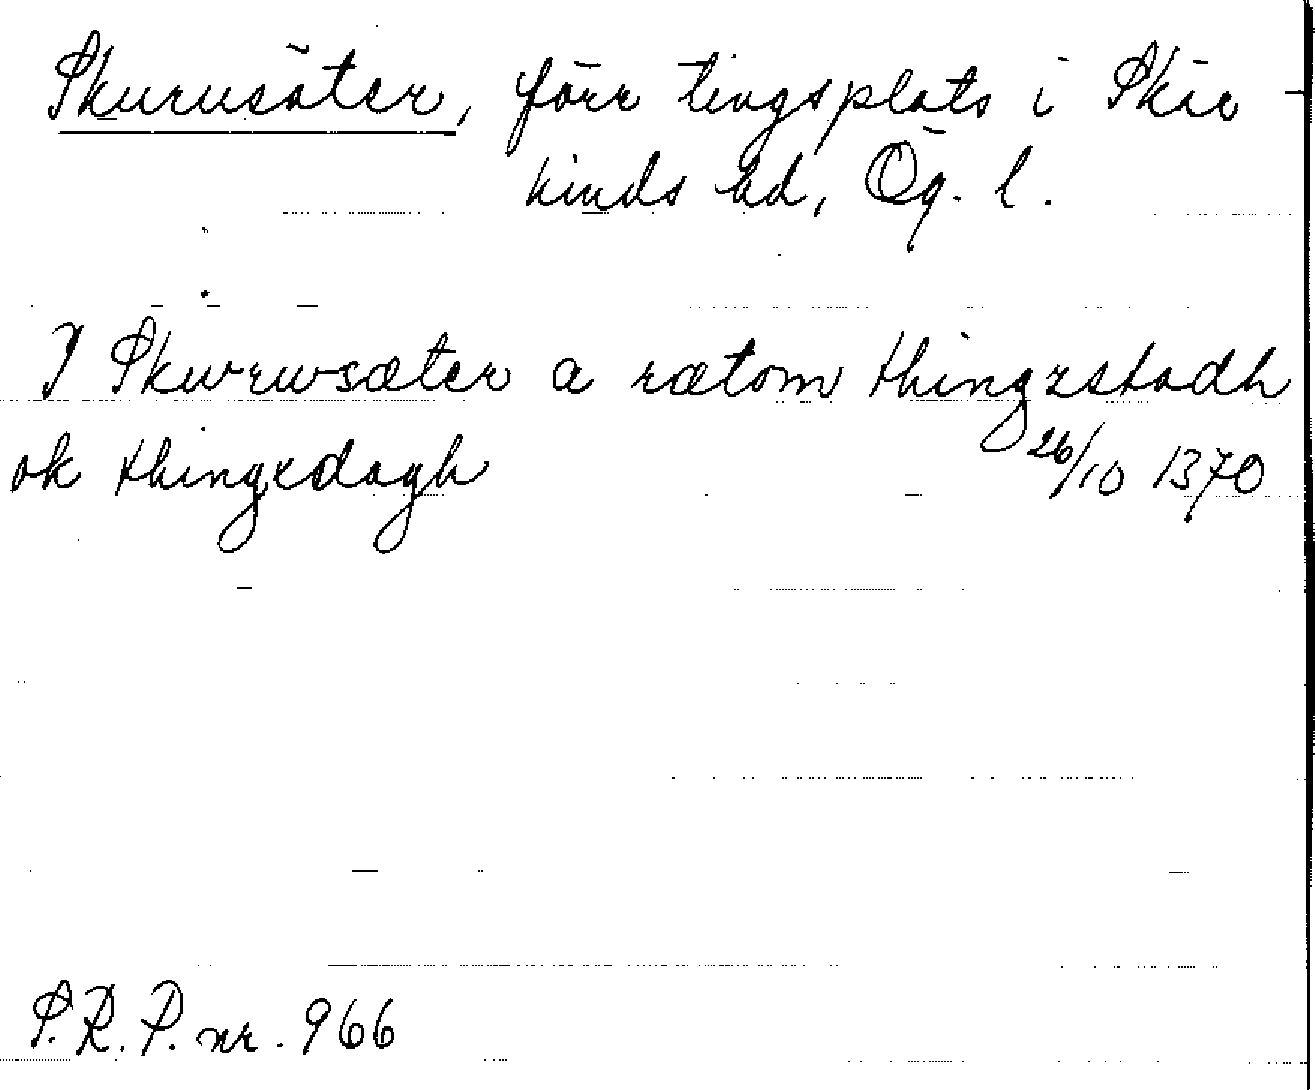 Skurusäter, förr tingsplats i Skär-
kinds hd, Ög. l.
I Skwrwsæter a rætom thingxstadh
ok thingxdagh 26/10 1370
S.R.P. nr. 966